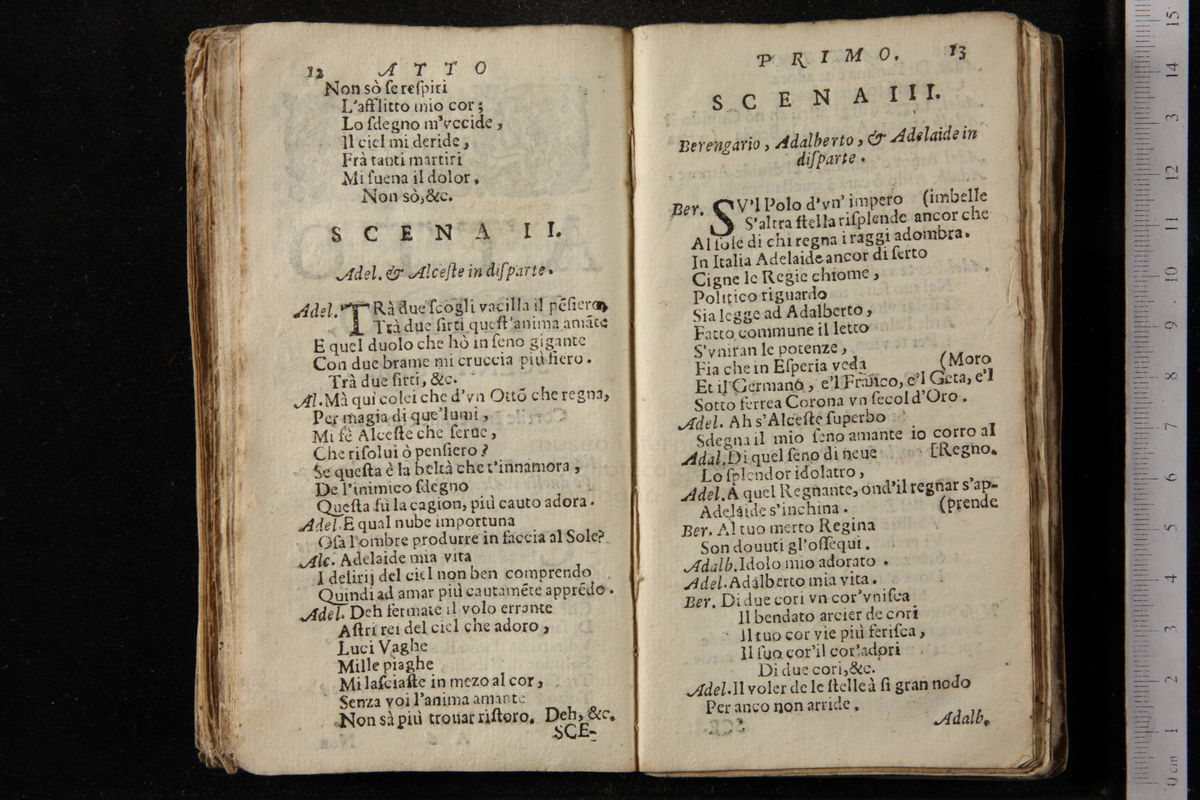 12 ATTO
Non sò se reſpiri
L'afflitto mio cor;
Lo ſdegno m'vccide,
Il ciel mi deride,
Frà tanti martiri
Mi ſuena il dolor.
Non sò,&c.
SCENA II.
Adel. & Alceſte in diſparte.
Adel. TRà due ſcogli vacilla il pẽſiero,
Trà due ſirti queſt'anima amãte
E quel duolo che hò in ſeno gigante
Con due brame mi cruccia più fiero.
Trà due ſirti, &c.
Al. Mà qui colei che d'vn Ottõ che regna,
Per magia di que'lumi,
Mi fè Alceſte che ſerue,
Che riſolui ò penſiero?
Se queſta è la beltà che t'innamora,
De l'inimico ſdegno
Queſta fù la cagion, più cauto adora.
Adel. E qual nube importuna
Oſa l'ombre produrre in faccia al Sole?
Alc. Adelaide mia vita
I delirij del ciel non ben comprendo
Quindi ad amar più cautamẽte apprẽdo.
Adel. Deh fermate il volo errante
Aſtri rei del ciel che adoro,
Luci Vaghe
Mille piaghe
Mi laſciaſte in mezo al cor,
Senza voi l'anima amante
Non sà più trouar riſtoro. Deh, &c.
SCE-
PRIMO. 13
SCENA III.
Berengario, Adalberto, & Adelaide in
diſparte.
Ber. SV'l Polo d'vn' impero (imbelle
S'altra ſtella riſplende ancor che
Al ſole di chi regna i raggi adombra.
In Italia Adelaide ancor di ſerto
Cigne le Regie chiome,
Politico riguardo
Sia legge ad Adalberto,
Fatto commune il letto
S'vniran le potenze,
Fia che in Eſperia veda (Moro
Et il Germano, e'l Franco, e'l Geta, e'l
Sotto ferrea Corona vn ſecol d'Oro.
Adel. Ah s'Alceſte ſuperbo
Sdegna il mio ſeno amante io corro al
Adal. Di quel ſeno di neue [Regno.
Lo ſplendor idolatro,
Adel. A quel Regnante, ond'il regnar s'ap-
Adelaide s'inchina. (prende
Ber. Al tuo merto Regina
Son douuti gl'oſſequi.
Adalb. Idolo mio adorato.
Adel. Adalberto mia vita.
Ber. Di due cori vn cor'vniſca
Il bendato arcier de cori
Il tuo cor vie più feriſca,
Il ſuo cor'il cor'adori
Di due cori,&c.
Adel. Il voler de le ſtelle à ſi gran nodo
Per anco non arride.
Adalb.
0 cm 1 2 3 4 5 6 7 8 9 10 11 12 13 14 15